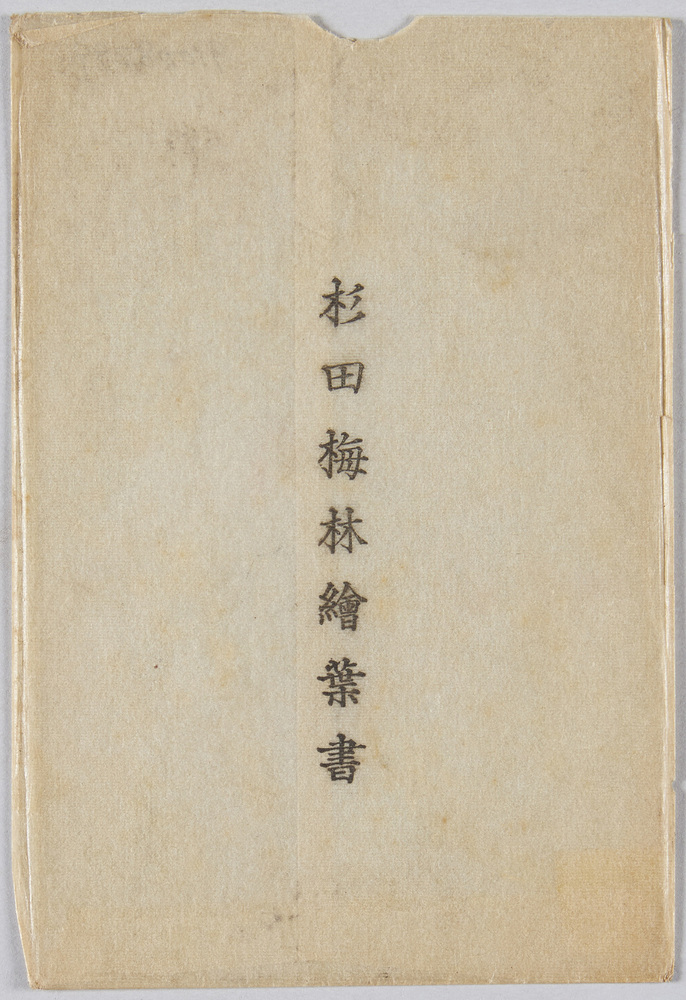 杉田梅林繪葉書